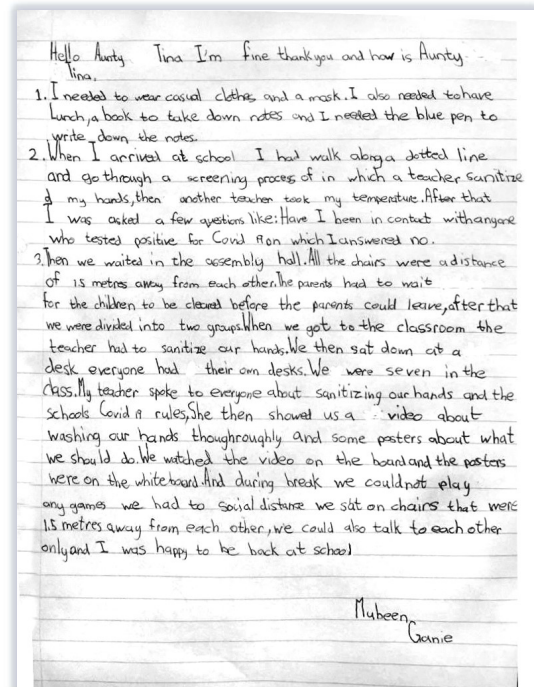 Hello Aunty Tina I'm fine thank you and how is Aunty
Tina,
1. I needed to wear casual clothes and a mask. I also needed to have
Lunch, a book to take down notes and I needed the blue pen to
write down the notes.
2. When I arrived at school I had walk along a dotted line
and go through a screening process of in which a teacher sanitize
d my hands, then another teacher took my temperature. After that
I was asked a few questions like: Have I been in contact with anyone
who tested positive for Covid 19 on which I answered no.
3. Then we waited in the assembly hall. All the chairs were a distance
of 1.5 metres away from each other. The parents had to wait
for the children to be cleared before the parents could leave, after that
we were divided into two groups. When we got to the classroom the
teacher had to sanitize our hands. We then sat down at a
desk everyone had their own desks. We were seven in the
class. My teacher spoke to everyone about sanitizing our hands and the
schools Covid 19 rules, She then showed us a video about
washing our hands thoughroughly and some posters about what
we should do. We watched the video on the board and the posters
here on the whiteboard. And during break we could not play
any games we had to social distance we sat on chairs that were
1.5 metres away from each other, we could also talk to each other
only and I was happy to be back at school
Mubeen
Ganie